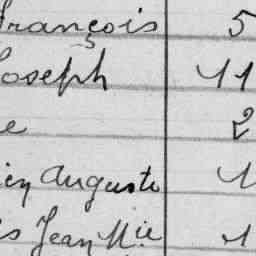 François 5
Joseph 11
e 2
ien Auguste 1
is Jean Mie 1